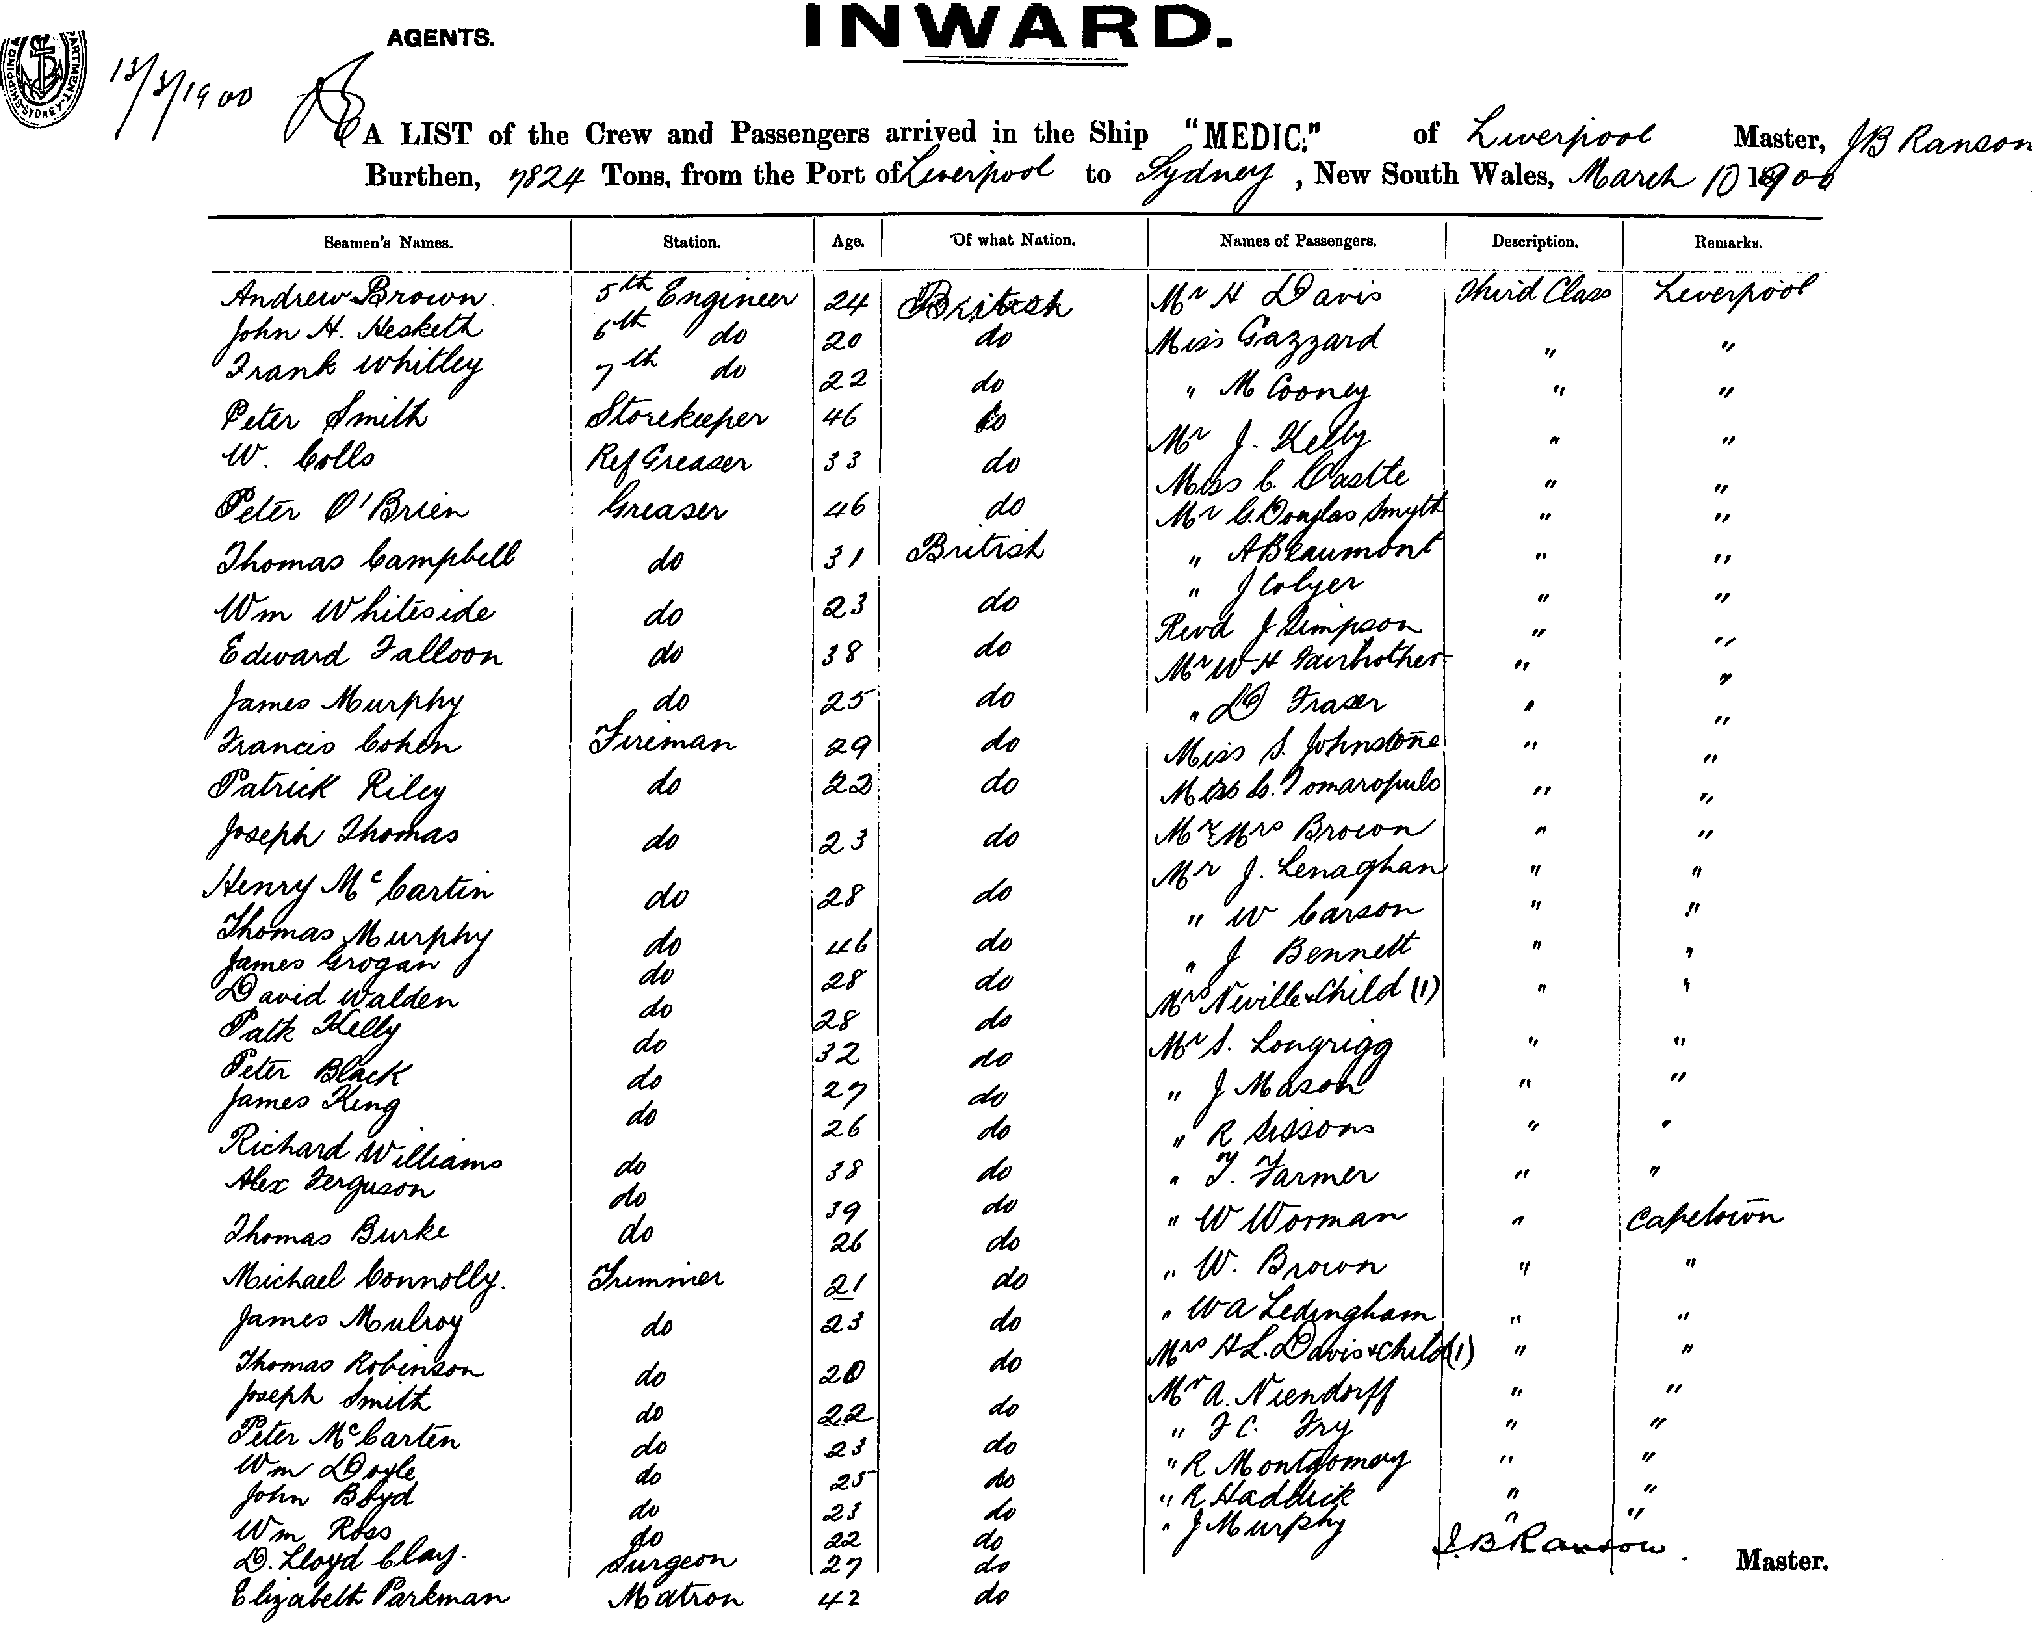 INWARD.
AGENTS.
13/3/1900
A LIST of the Crew and Passengers arrived in the Ship "MEDIC." of Liverpool Master, JB Ranson
Burthen, 7824 Tons, from the Port of Liverpool to Sydney, New South Wales, March 10 1900
Seamen's Names. Station. Age. Of what Nation. Names of Passengers. Description. Remarks.
Andrew Brown. 5th Engineer 24 British Mr H Davis Third Class Liverpool
John H. Hesketh 6th do 20 do Miss Gazzard " "
Frank Whitley 7th do 22 do " M Cooney " "
Peter Smith Storekeeper 46 do Mr J. Kelly " "
W. Colls Ref Greaser 33 do Miss C Castle " "
Peter O'Brien Greaser 46 do Mr C. Douglas Smyth " "
Thomas Campbell do 31 British " A Beaumont " "
Wm Whiteside do 23 do " J Colyer " "
Edward Falloon do 38 do Revd J Simpson " "
James Murphy do 25 do Mr W H Fairbrother " "
Francis Cohen Fireman 29 do " D Fraser " "
Patrick Riley do 22 do Miss S. Johnstone " "
Joseph Thomas do 23 do Miss C. Tomaropulo " "
Henry McCartin do 28 do Mr & Mrs Brown " "
Thomas Murphy do 46 do Mr J. Lenaghan " "
James Grogan do 28 do " W Carson " "
David Walden do 28 do " J Bennett " "
Patk Kelly do 32 do Mrs Neville & Child (1) " "
Peter Black do 27 do Mr S. Longrigg " "
James King do 26 do " J Mason " "
Richard Williams do 38 do " R Sissons " "
Alex Ferguson do 39 do " T. Farmer " "
Thomas Burke do 26 do " W Worman " Capetown
Michael Connolly. Trimmer 21 do " W. Brown " "
James Mulroy do 23 do " W A Ledingham " "
Thomas Robinson do 20 do Mrs H L. Davis & Child (1) " "
Joseph Smith do 22 do Mr A. Niendorff " "
Peter McCarten do 23 do " F C. Fry " "
Wm Doyle do 25 do " R Montgomery " "
John Boyd do 23 do " R Haddrick " "
Wm Ross do 22 do " J Murphy " "
D. Lloyd Clay. Surgeon 27 do J. B Ranson. Master.
Elizabeth Parkman Matron 42 do